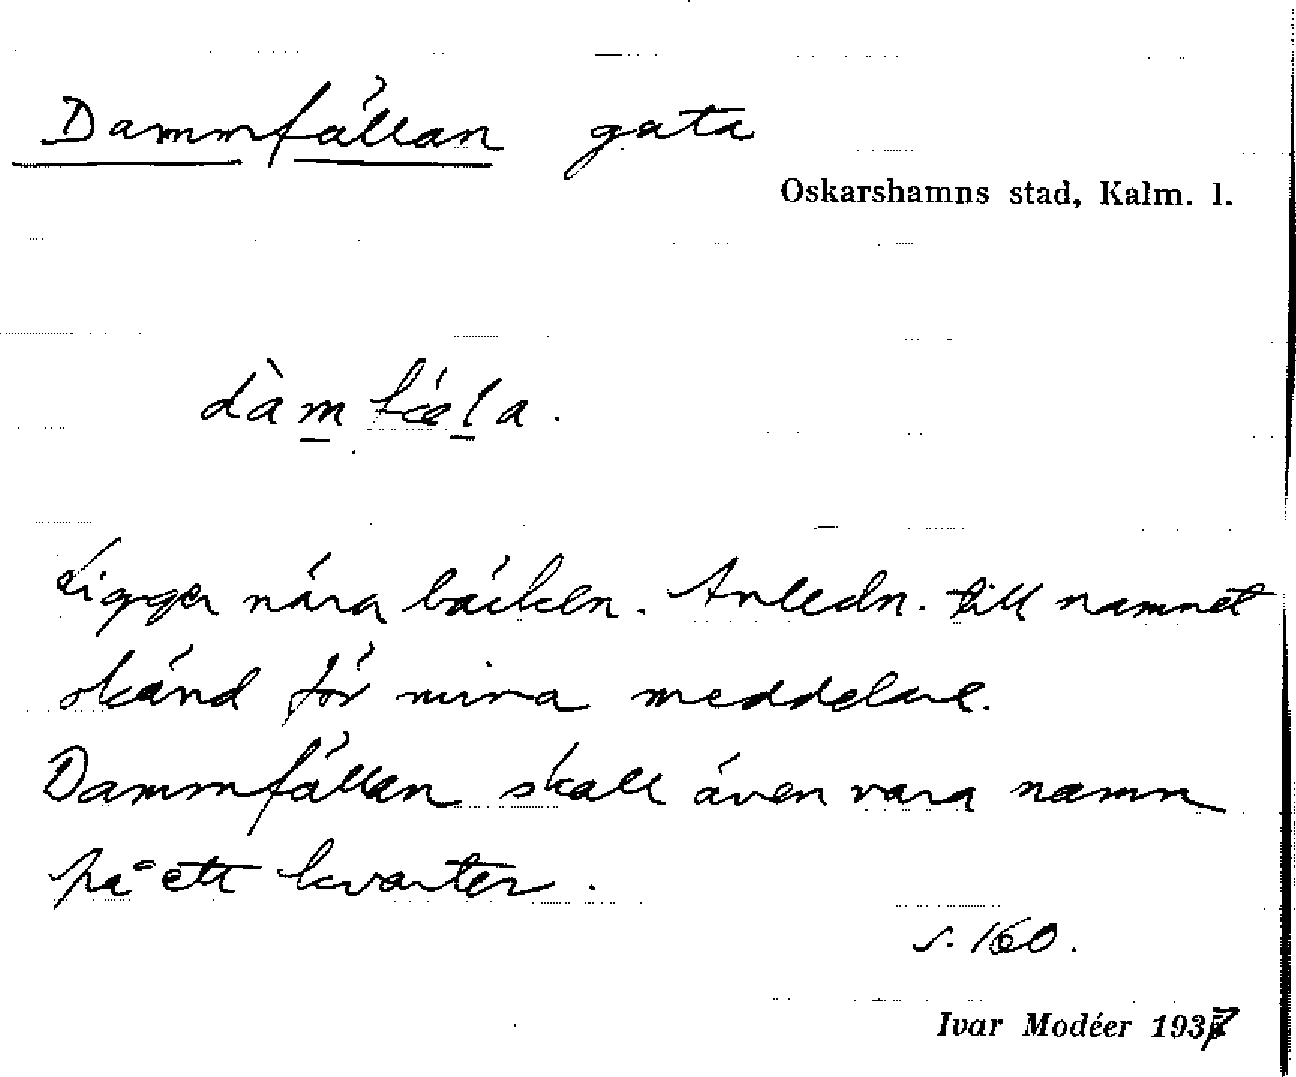 Dammfällan gata
Oskarshamns stad, Kalm. l.
dàmfǽla.
Ligger nära bäcken. Anledn. till namnet
okänd för mina meddelare.
Dammfällan skall även vara namn
på ett kvarter.
s. 160.
Ivar Modéer 1937